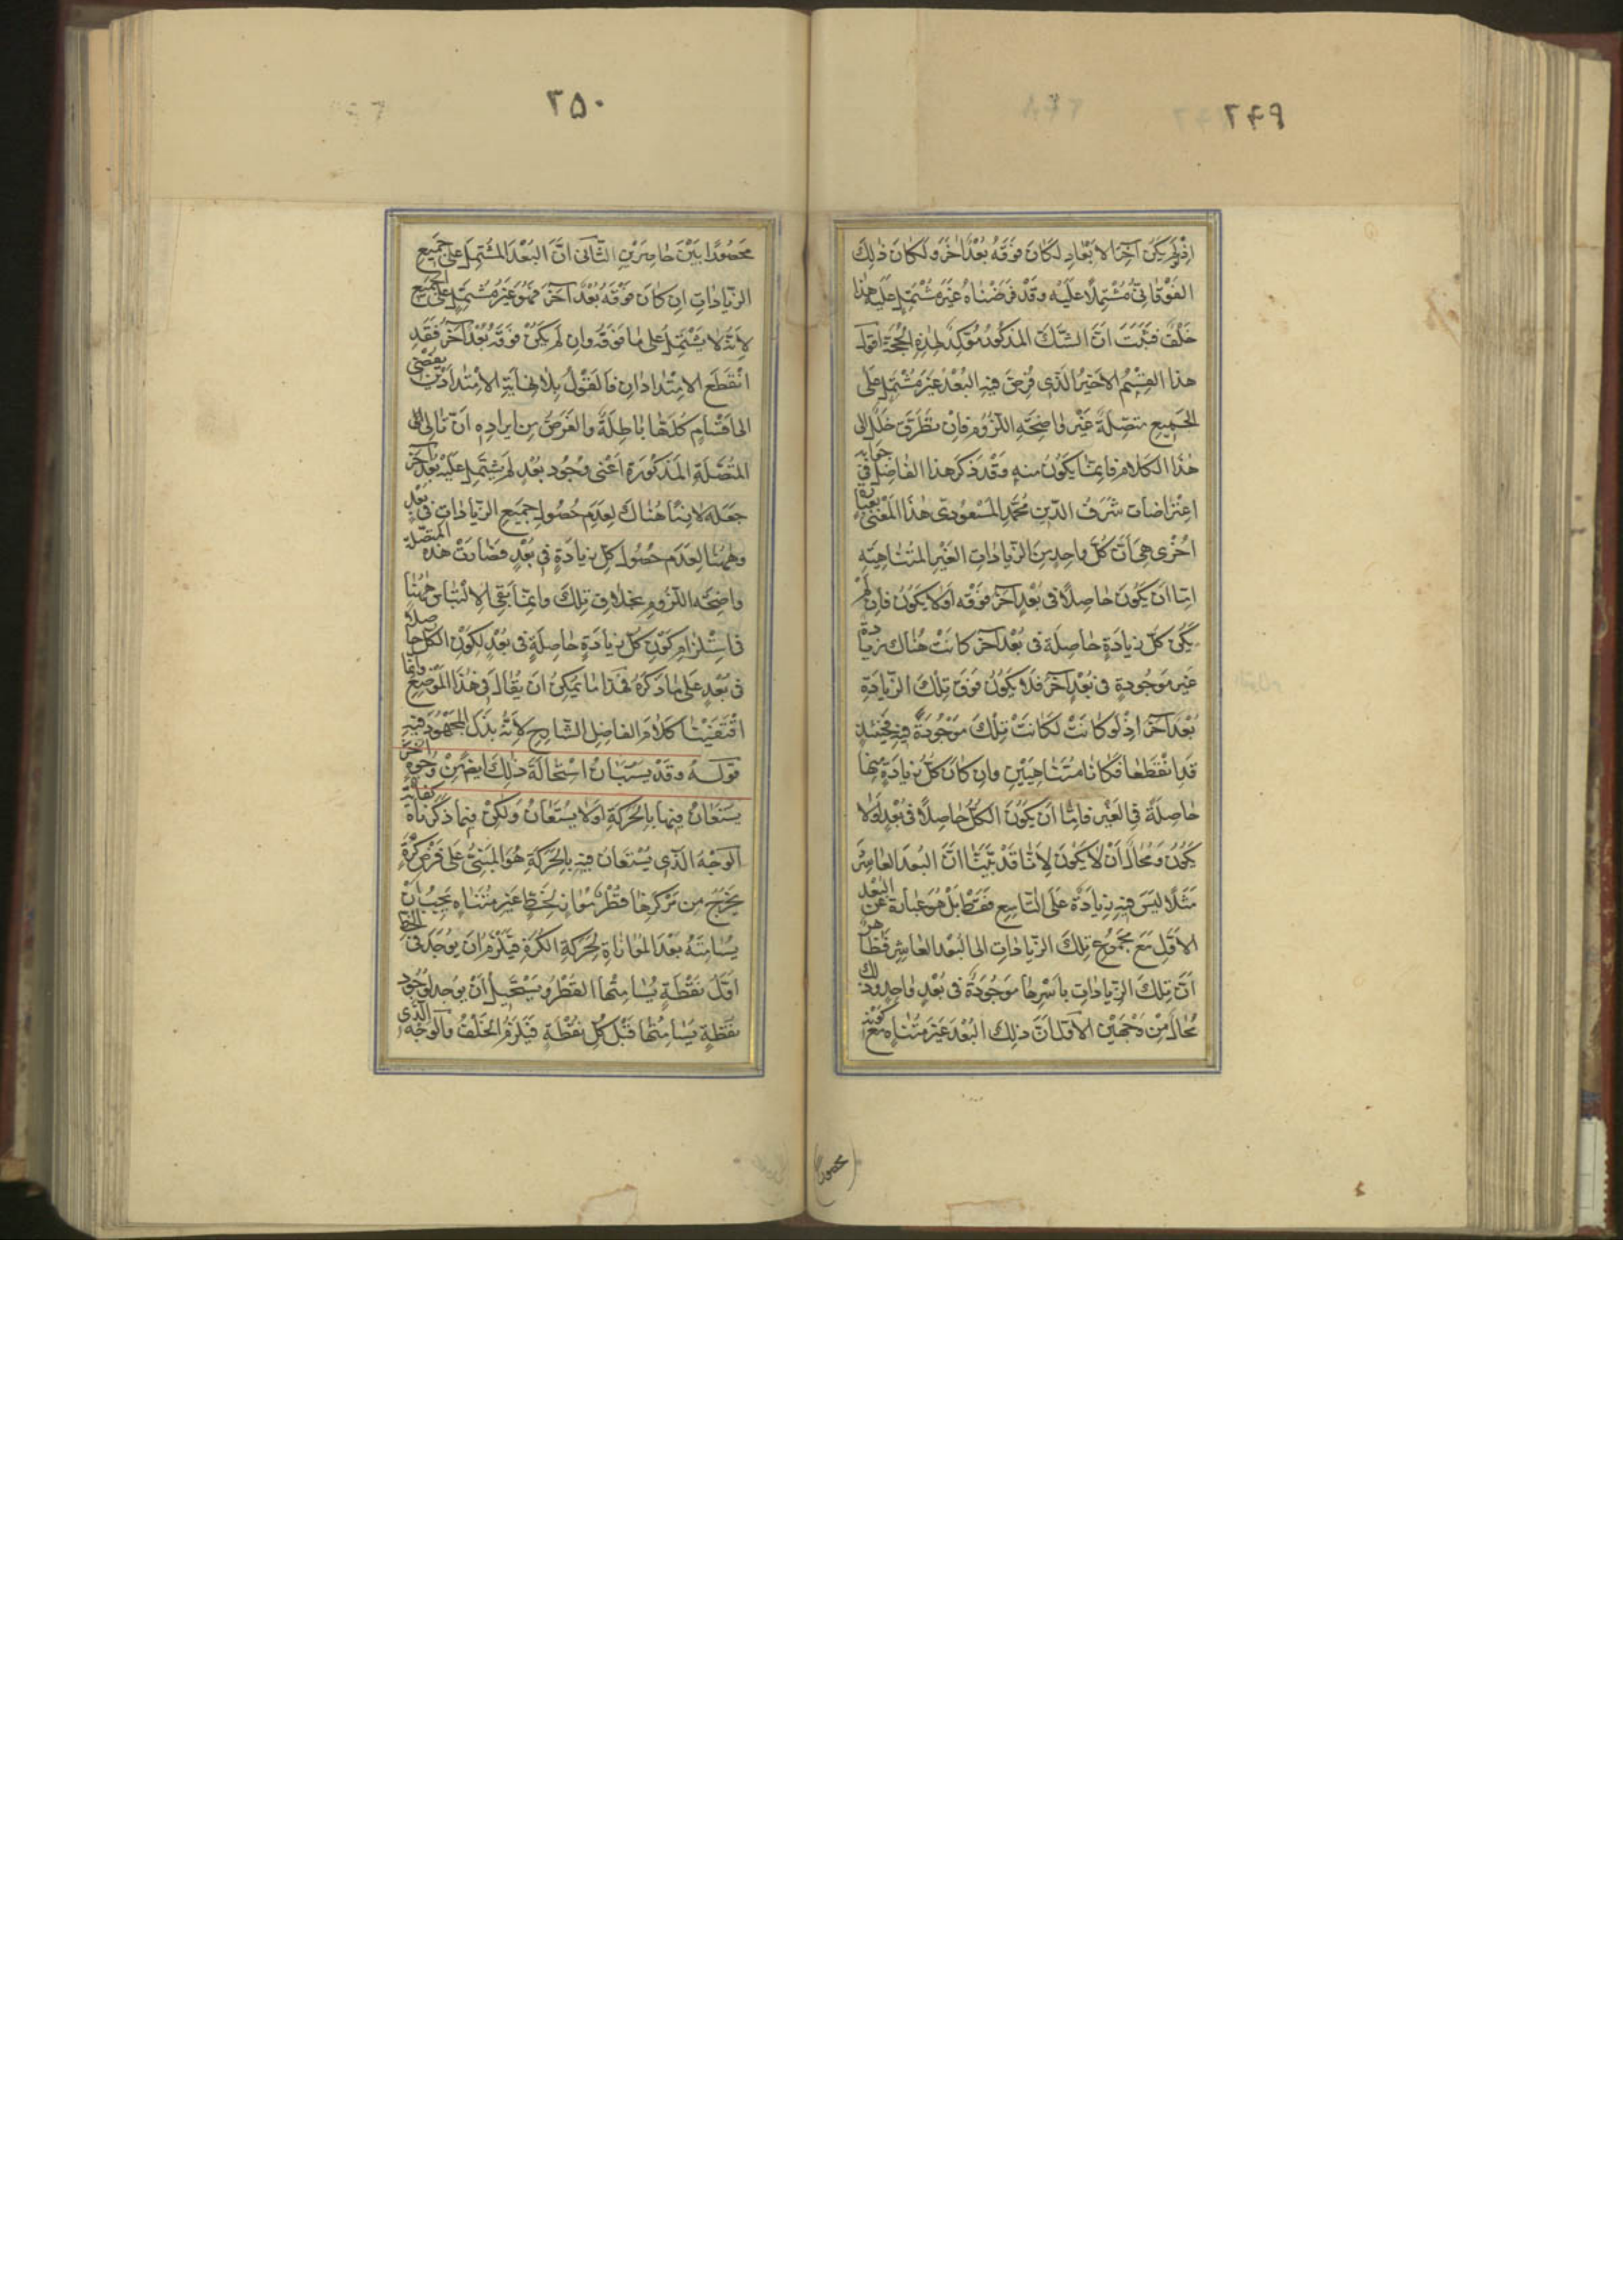 ٢٤٩
اذ لو لم يكن آخر الابعاد لكان فوقه بعد آخر ولكان ذلك
الفوقانى مشتملا عليه وقد فرضناه غير مشتمل عليه هذا
خلف فثبت ان الشك المذكور مؤكد لهذه الحجة اقول
هذا القسم الاخير الذى فرض فيه البعد غير مشتمل على
الجميع متصلة غير واضحة اللزوم فان تطرق خلل الى
هذا الكلام فانما يكون منه وقد ذكر هذا الفاضل فى جوابه
اعتراضات شرف الدين محمد المسعودى هذا المعنى بعبارة
اخرى هى ان كل واحد من الزيادات الغير المتناهية
اما ان يكون حاصلا فى بعد آخر فوقه او لا يكون فان لم
يكن كل زيادة حاصلة فى بعد آخر كانت هناك زيادة
غير موجودة فى بعد آخر فلا يكون فوق تلك الزيادة
بعد آخر اذ لو كانت لكانت تلك موجودة فيه فحينئذ
قد انقطعا فكانا متناهيين وان كان كل زيادة منها
حاصلة فى الغير فاما ان يكون الكل حاصلا فى بعد او لا
يكون ومحال ان لا يكون لانا قد بينا ان البعد العاشر
مثلا ليس فيه زيادة على التاسع فقط بل هو عبارة عن البعد
الاول مع مجموع تلك الزيادات الى البعد العاشر فظهر
ان تلك الزيادات باسرها موجودة فى بعد واحد وذلك
محال من وجهين الاول ان ذلك البعد غير متناه مع كونه
محصورا
٢٥٠
محصورا بين حاصرين الثانى ان البعد المشتمل على جميع
الزيادات ان كان فوقه بعد آخر فهو غير مشتمل على الجميع
لانه لا يشتمل على ما فوقه وان لم يكن فوقه بعد آخر فقد
انقطع الامتدادان فالقول بلا نهاية الامتدادين يفضى
الى اقسام كلها باطلة والغرض من ايراده ان تالى
المتصلة المذكورة اعنى وجود بعد لم يشتمل عليه بعد آخر
جعله لازما هناك لعدم حصول جميع الزيادات فى بعد
وههنا لعدم حصول كل زيادة فى بعد فصارت هذه المتصلة
واضحة اللزوم بخلاف تلك وانما بقى الالتباس ههنا
فى استلزام كون كل زيادة حاصلة فى بعد لكون الكل حاصلا
فى بعد على ما ذكره فهذا ما يمكن ان يقال فى هذا الموضع وانما
اقتفينا كلام الفاضل الشارح لانه بذل المجهود فيه
قوله وقد يستبان استحالة ذلك ايضا من وجوه اخر
يستعان فيها بالحركة او لا يستعان ولكن فيما ذكرناه كفاية
الوجه الذى يستعان فيه بالحركة هو المبنى على فرض كرة
يخرج من مركزها قطر مواز لخط غير متناه يجب ان
يسامته بعد الموازاة لحركة الكرة فيلزم ان يوجد فى الخط
اول نقطة يسامتها القطر ويستحيل ان يوجد لوجود
نقطة يسامتها قبل كل نقطة فيلزم الخلف والوجه الذى